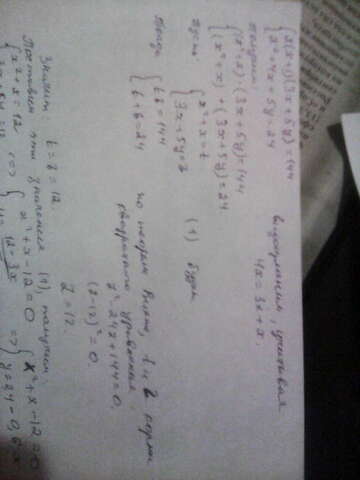 { x(x+1)(3x+5y)=144
{ x²+4x+5y=24
видоизменим, учитывая
4x=3x+x.
получим:
{ (x²+x)·(3x+5y)=144
{ (x²+x)+(3x+5y)=24
Пусть { x²+x=t
{ 3x+5y=z (1) Будем
{ tz=144
{ t+z=24
по теореме Виета, t и z корни
квадратного уравнения
z²-24z+144=0.
(z-12)²=0.
z=12.
Значит t=z=12.
Поставим эти значения (1), получим:
{ x²+x=12 <=> { x²+x-12=0 { x²+x-12=0